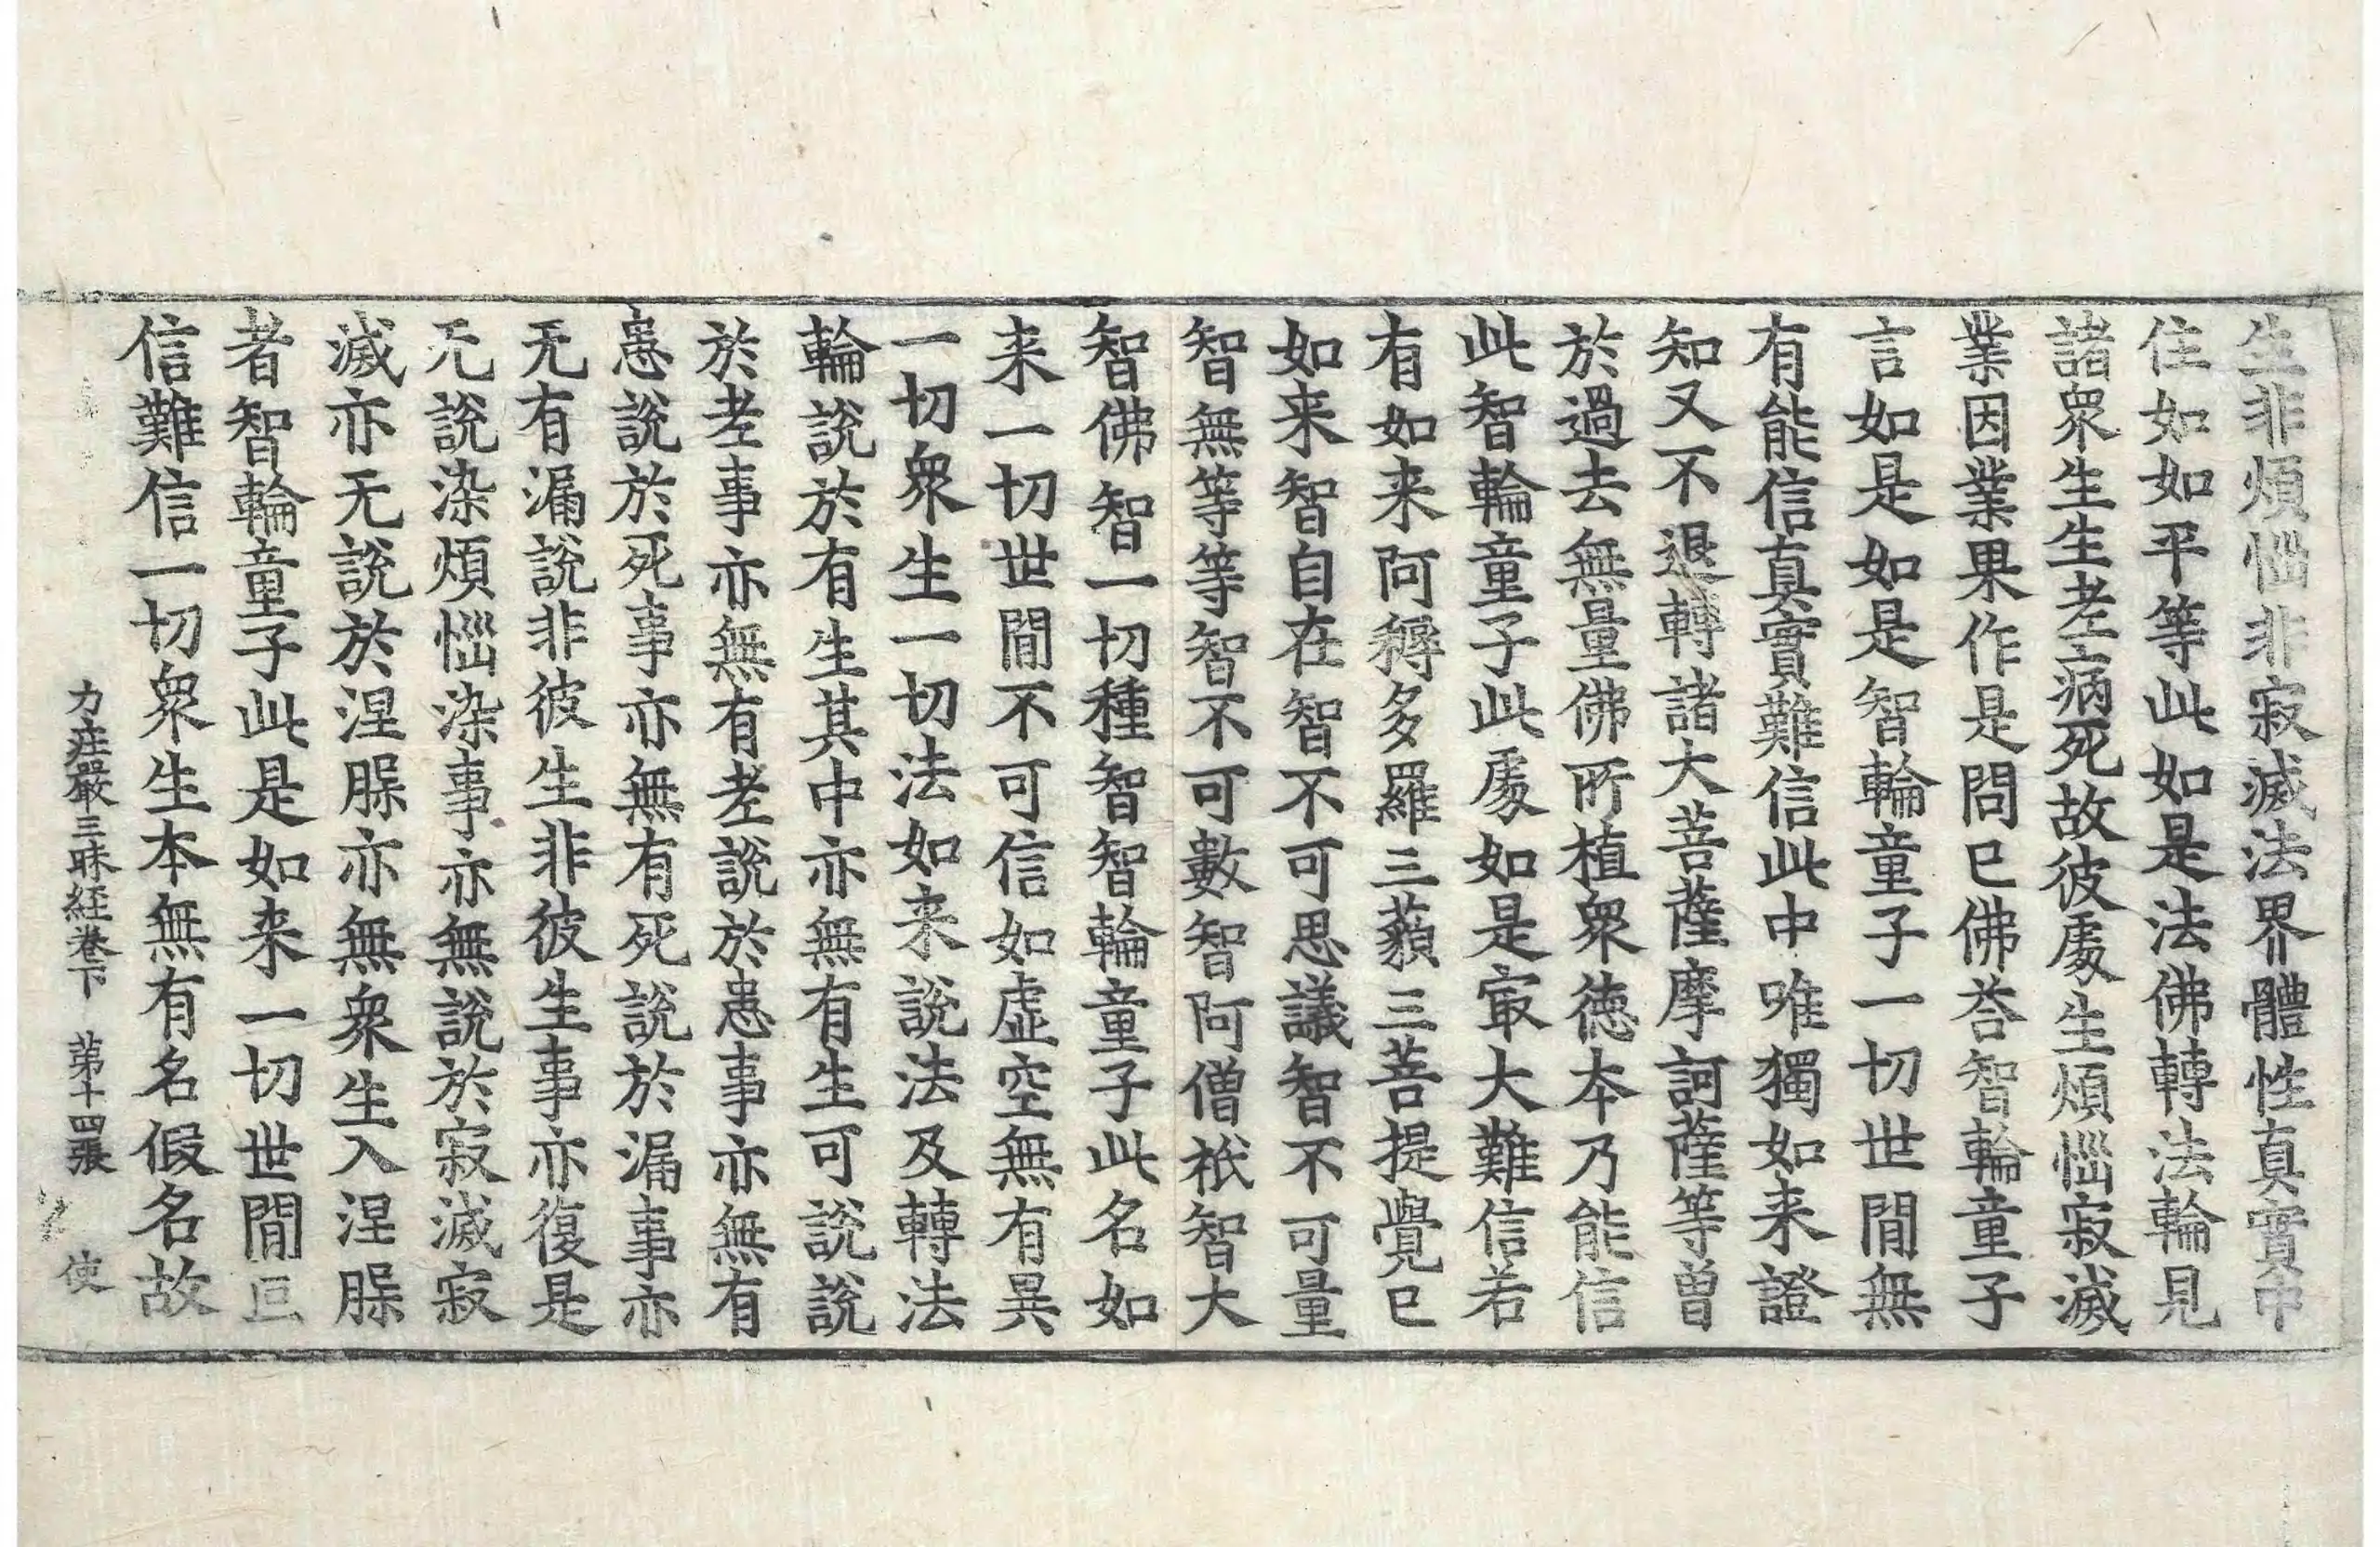 生非煩惱非寂滅法界體性真實中
住如如平等此如是法佛轉法輪見
諸衆生生老病死故彼處生煩惱寂滅
業因業果作是問已佛荅智輪童子
言如是如是智輪童子一切世間無
有能信真實難信此中唯獨如来證
知又不退轉諸大菩薩摩訶薩等曽
於過去無量佛所植衆徳本乃能信
此智輪童子此處如是㝡大難信若
有如来阿耨多羅三藐三菩提覺已
如来智自在智不可思議智不可量
智無等等智不可數智阿僧祇智大
智佛智一切種智智輪童子此名如
来一切世間不可信如虛空無有異
一切衆生一切法如来說法及轉法
輪說於有生其中亦無有生可說說
於老事亦無有老說於患事亦無有
患說於死事亦無有死說於漏事亦
无有漏說非彼生非彼生事亦復是
无說染煩惱染事亦無說於寂滅寂
滅亦无說於涅槃亦無衆生入涅槃
者智輪童子此是如来一切世間叵
信難信一切衆生本無有名假名故
力莊嚴三昧經卷下　第十四張　使